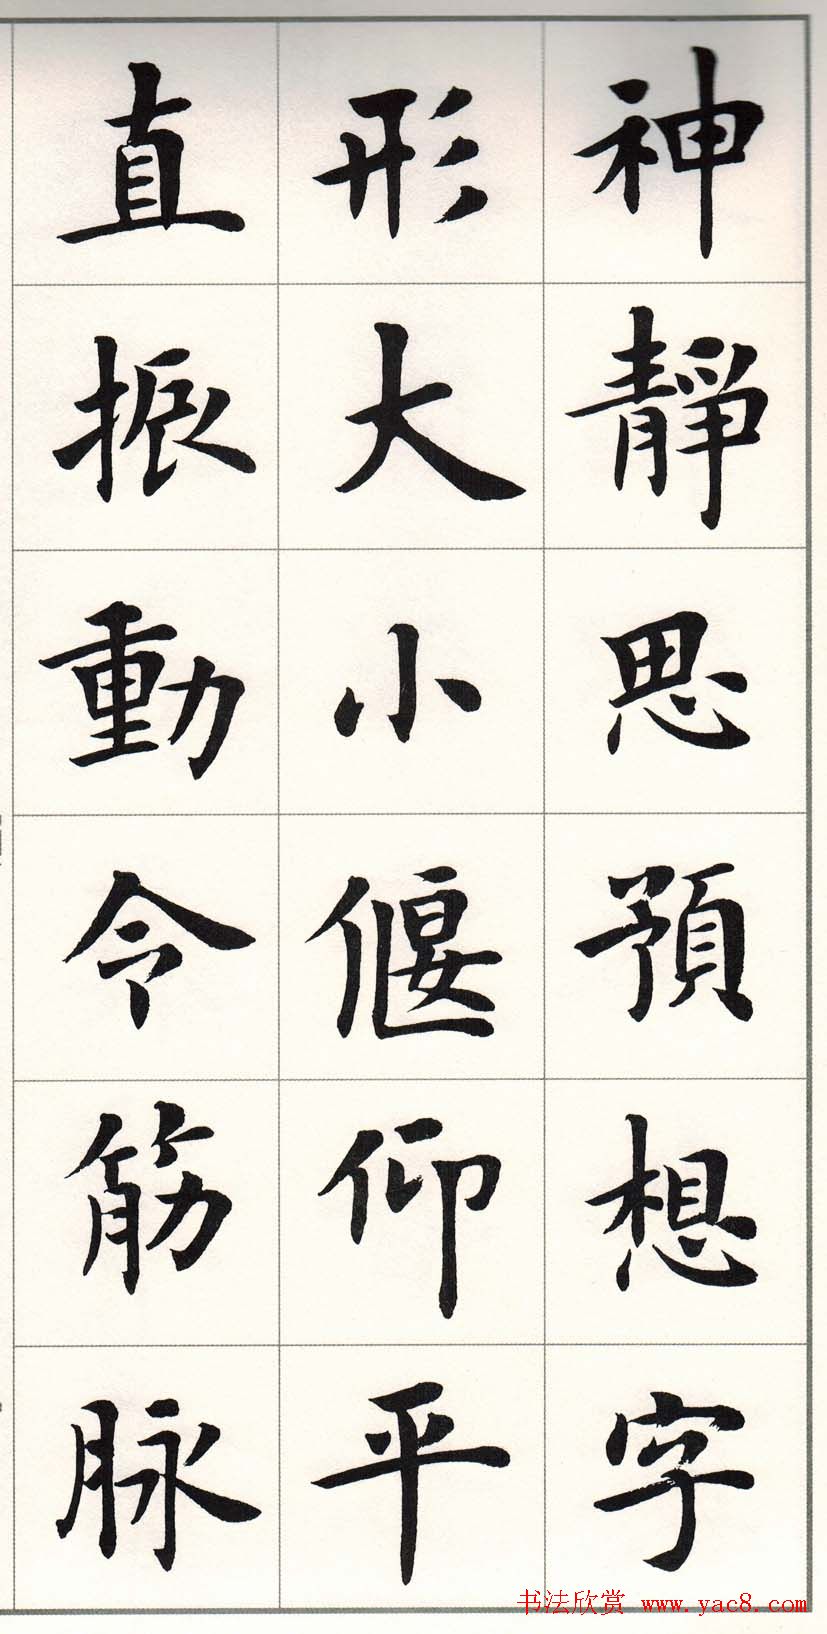 神靜思預想字
形大小偃仰平
直振動令筋脉
书法欣赏 www.yac8.com